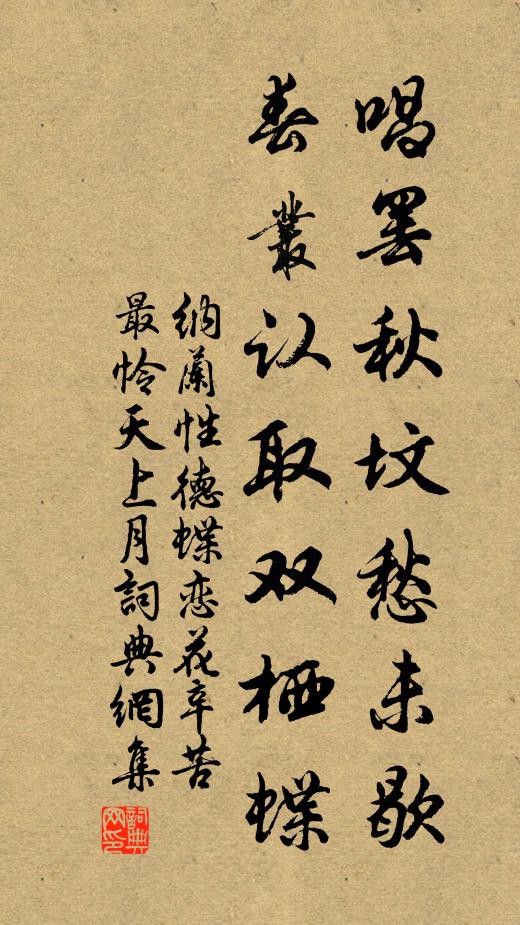 唱罢秋坟愁未歇
春叢认取双栖蝶
纳蘭性德蝶恋花辛苦
最怜天上月詞典網集
詞典
网印